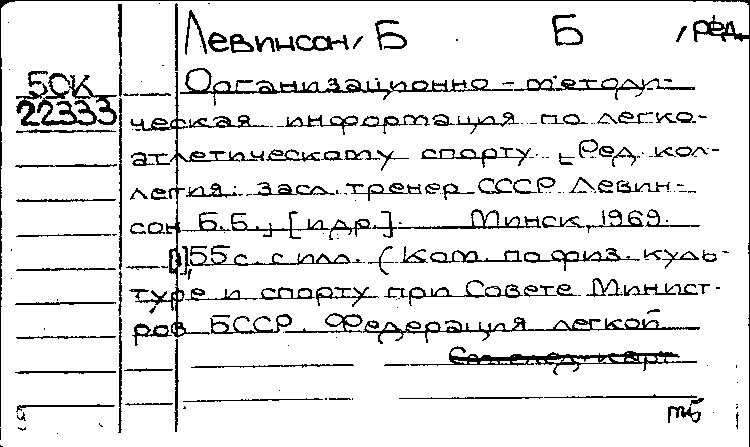 Левинсон, Б Б , ред.
БОК
22333
Организационно-методи-
ческая информация по легко-
атлетическому спорту. [Ред. кол-
легия: засл. тренер СССР Левин-
сон Б.Б.], [и др.]. Минск, 1969.
55 с. с илл. (Ком. по физ. куль-
туре и спорту при Совете Минист-
ров БССР. Федерация легкой
См. след. карт
тб